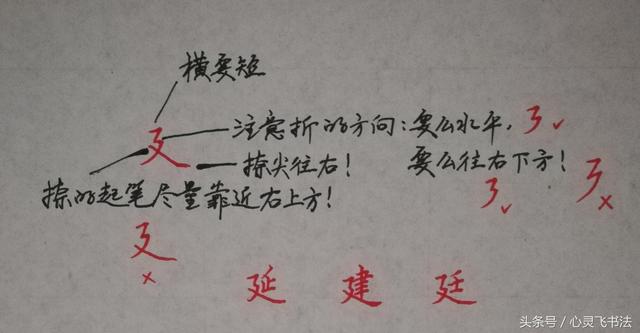 横要短
廴
注意折的方向：要么水平，
捺尖往右！
要么往右下方！
捺的起笔尽量靠近右上方！
廴
延 建 廷
头条号／心灵飞书法